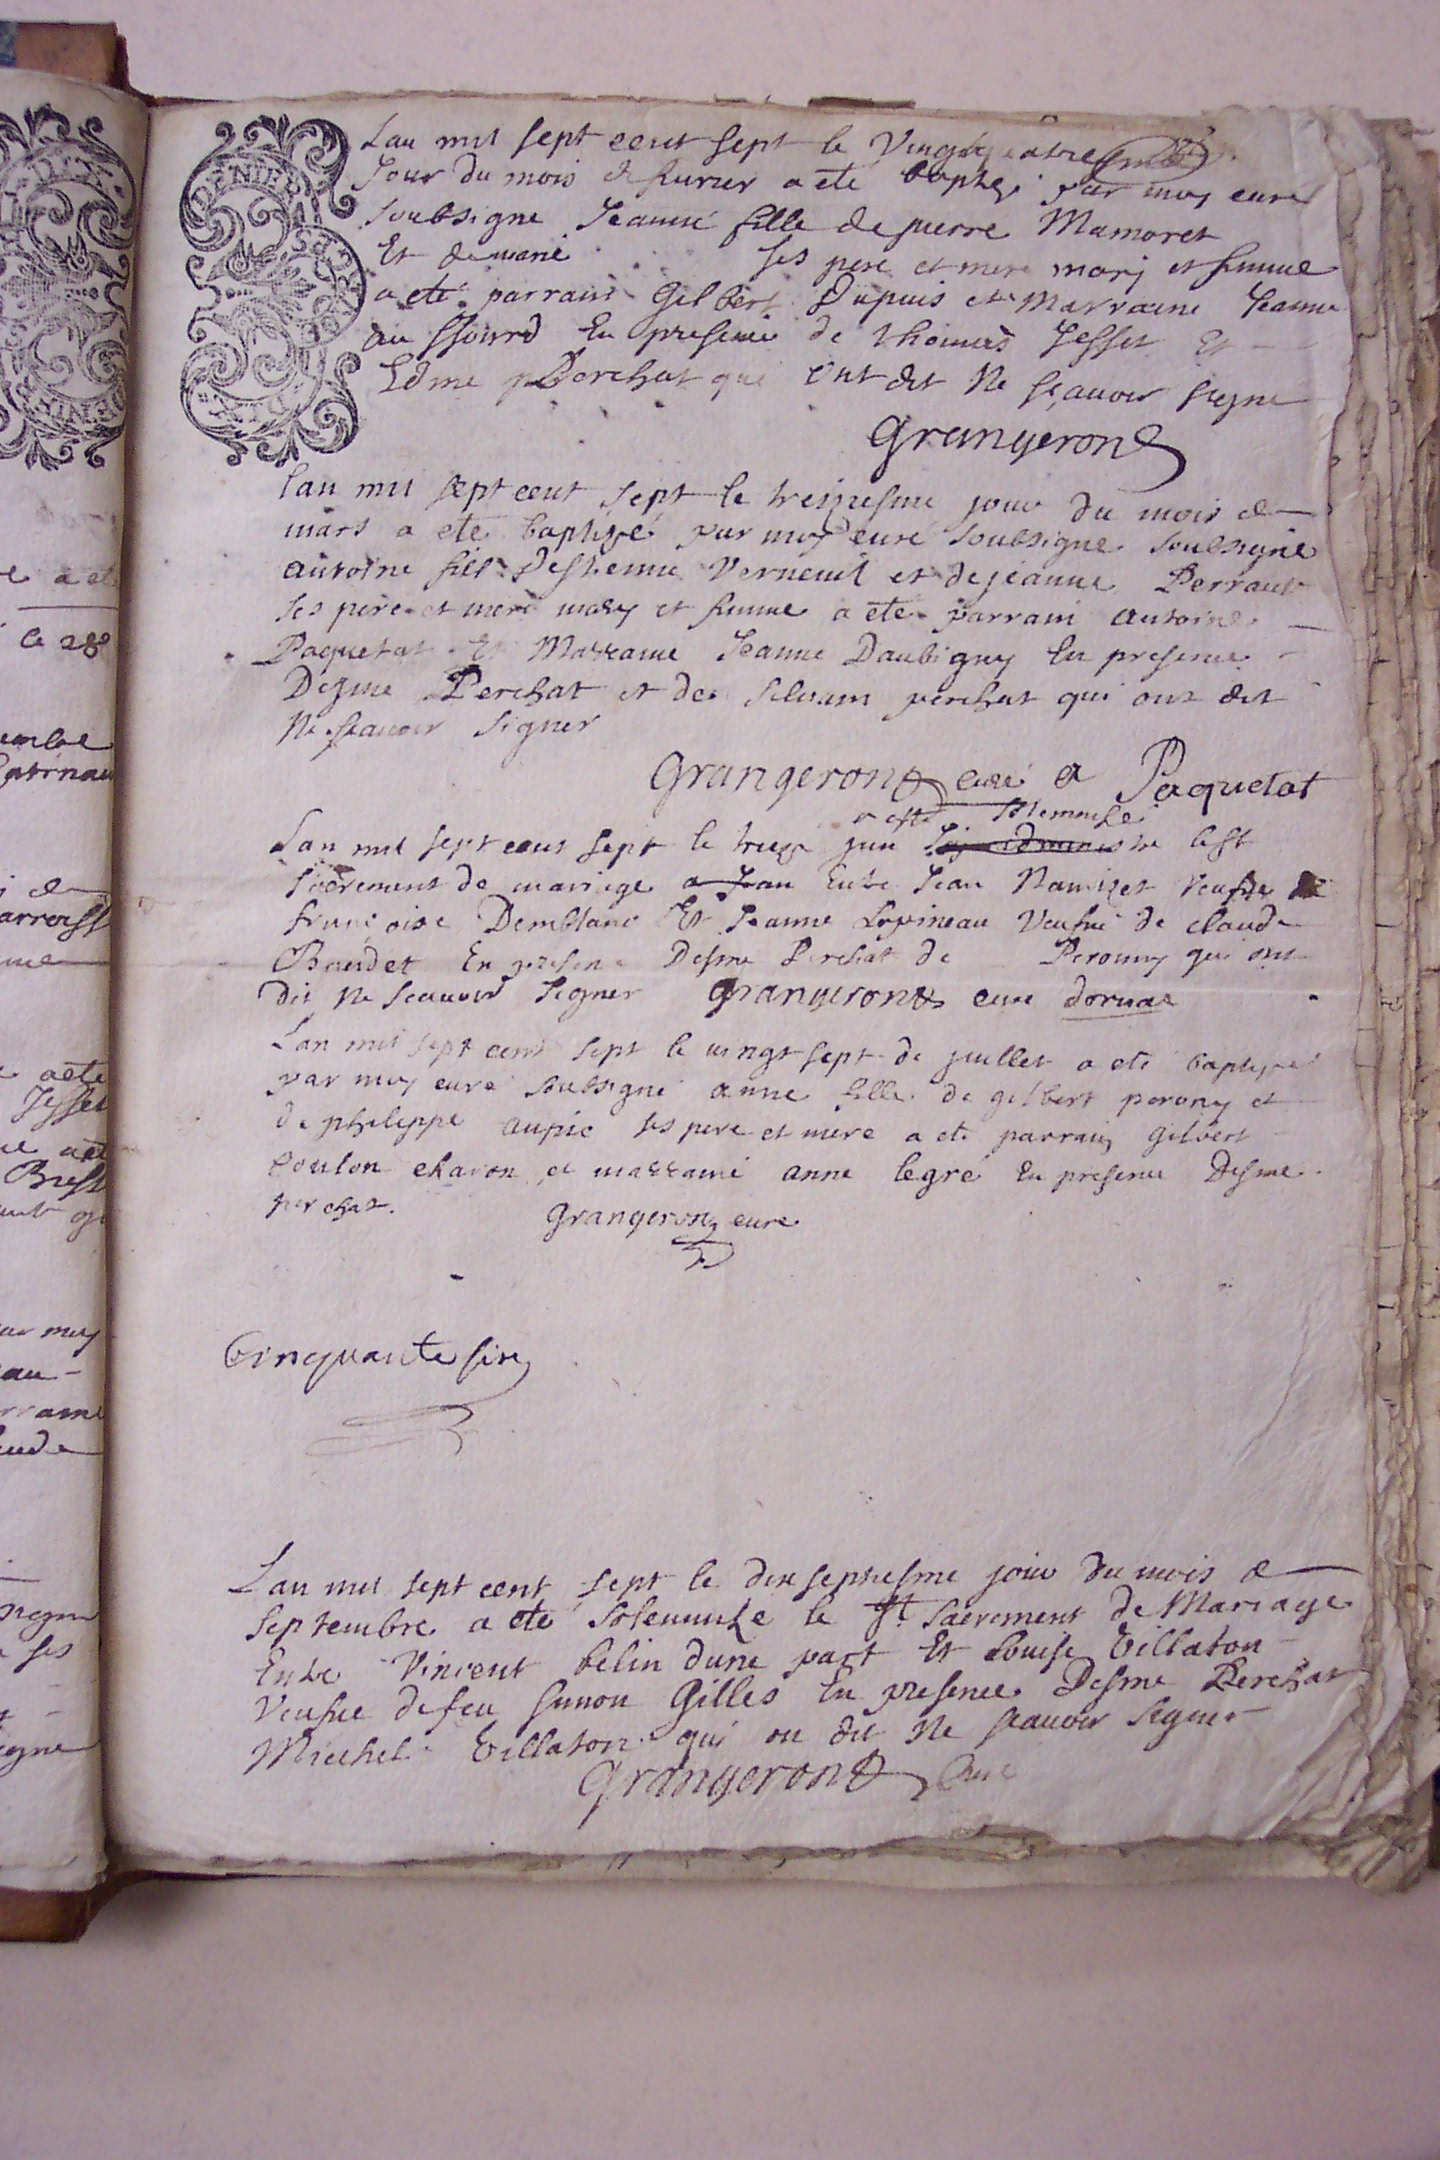 Lan mil sept cent sept le Vingt quatre
Jour du mois de feurier a ete baptize par moy cure
soubsigne Jeanne fille de pierre Mamoret
Et de marie ses pere et mere mary et femme
a ete parrain Gilbert Dupuis et Marraine Jeanne
au ssourd En presence de thomas Jesset Et
Edme perchat qui ont dit Ne sçauoir signe
Grangeron
lan mil sept cent sept le treiziesme jour du mois de
mars a ete baptizé par moy curé soubsigne soubsigné
Antoine fils destienne Verneuil et de jeanne Perraut
ses pere et mere mary et femme a ete parrain Antoine
Paquetat Et Marraine Jeanne Daubigny En presence
Desme Perchat et de siluain perchat qui ont dit
Ne scauoir signer
Grangeron curé a Paquetat
a esté solemnise
Lan mil sept cens sept le treze juin administre le St
sacrement de mariage a Jean Entre Jean Ramizet veufue de
francoise Demblanc Et Jeanne Lopineau Veufue de claude
Baudet En presence Desme Perchat de Peronny qui ont
dit Ne scauoir signer Grangeron cure dornae
Lan mil sept cent sept le uingt sept de juillet a ete baptizee
par moy curé soubsigné anne fille de gilbert perony et
de phileppe aupic ses pere et mere a ete parrain gilbert
coulon charon et marraine anne legré En presence Desme
perchat. Grangeron cure
Cinquante six
Lan mil sept cent sept le dix septiesme jour du mois de
septembre a eté solemnize le St sacrement de Mariage
Entre Vincent belin dune part Et Louise Tillaton
Veufue de feu simon Gilles En presence Desme Perchat
Miechel Tillaton qui on dit Ne scauoir signer
Grangeron Cure